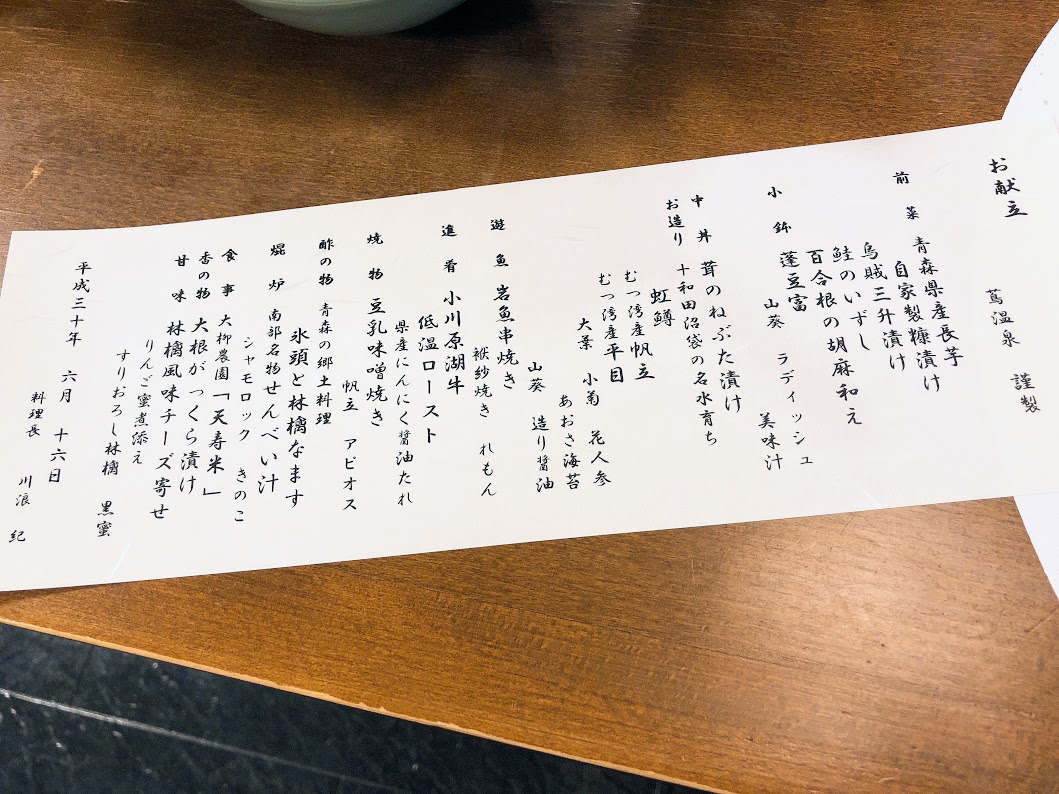 お献立 蔦温泉 謹製
前菜 青森県産長芋
自家製糠漬け
烏賊三升漬け
鮭のいずし
百合根の胡麻和え
小鉢 蓬豆富 美味汁
山葵 ラディッシュ
中丼 茸のねぶた漬け
お造り 十和田沼袋の名水育ち
虹鱒
むつ湾産帆立
むつ湾産平目
大葉 小菊 花人参
あおさ海苔
山葵 造り醤油
遊魚 岩魚串焼き
袱紗焼き れもん
進肴 小川原湖牛
低温ロースト
県産にんにく醤油たれ
焼物 豆乳味噌焼き
帆立 アピオス
酢の物 青森の郷土料理
氷頭と林檎なます
焜炉 南部名物せんべい汁
シャモロック きのこ
食事 大柳農園「天寿米」
香の物 大根がっくら漬け
甘味 林檎風味チーズ寄せ
りんご蜜煮添え
すりおろし林檎 黒蜜
平成三十年 六月 十六日
料理長 川浪 紀